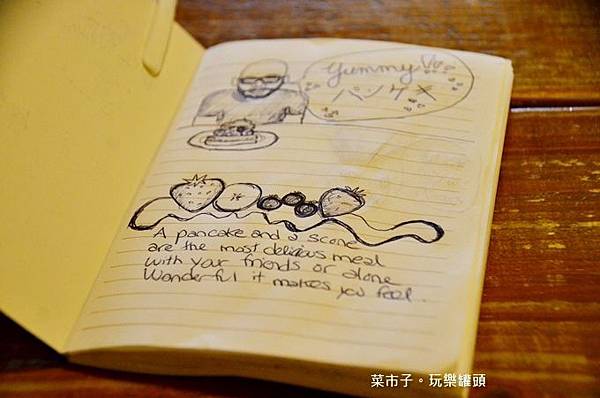 Yummy
パンケーキ
A pancake and a scone
are the most delicious meal
with your friends or alone
Wonderful it makes you feel.
菜市子。玩樂罐頭